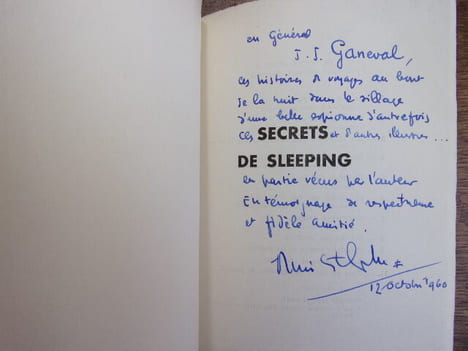 au Général
J. J. Ganeval,
ces histoires de voyages au bout
de la nuit dans le sillage
d'une belle espionne d'autrefois
ces SECRETS et d'autres
DE SLEEPING
en partie vécus par l'auteur
En témoignage de respectueuse
et fidèle amitié.
12 octobre 1960